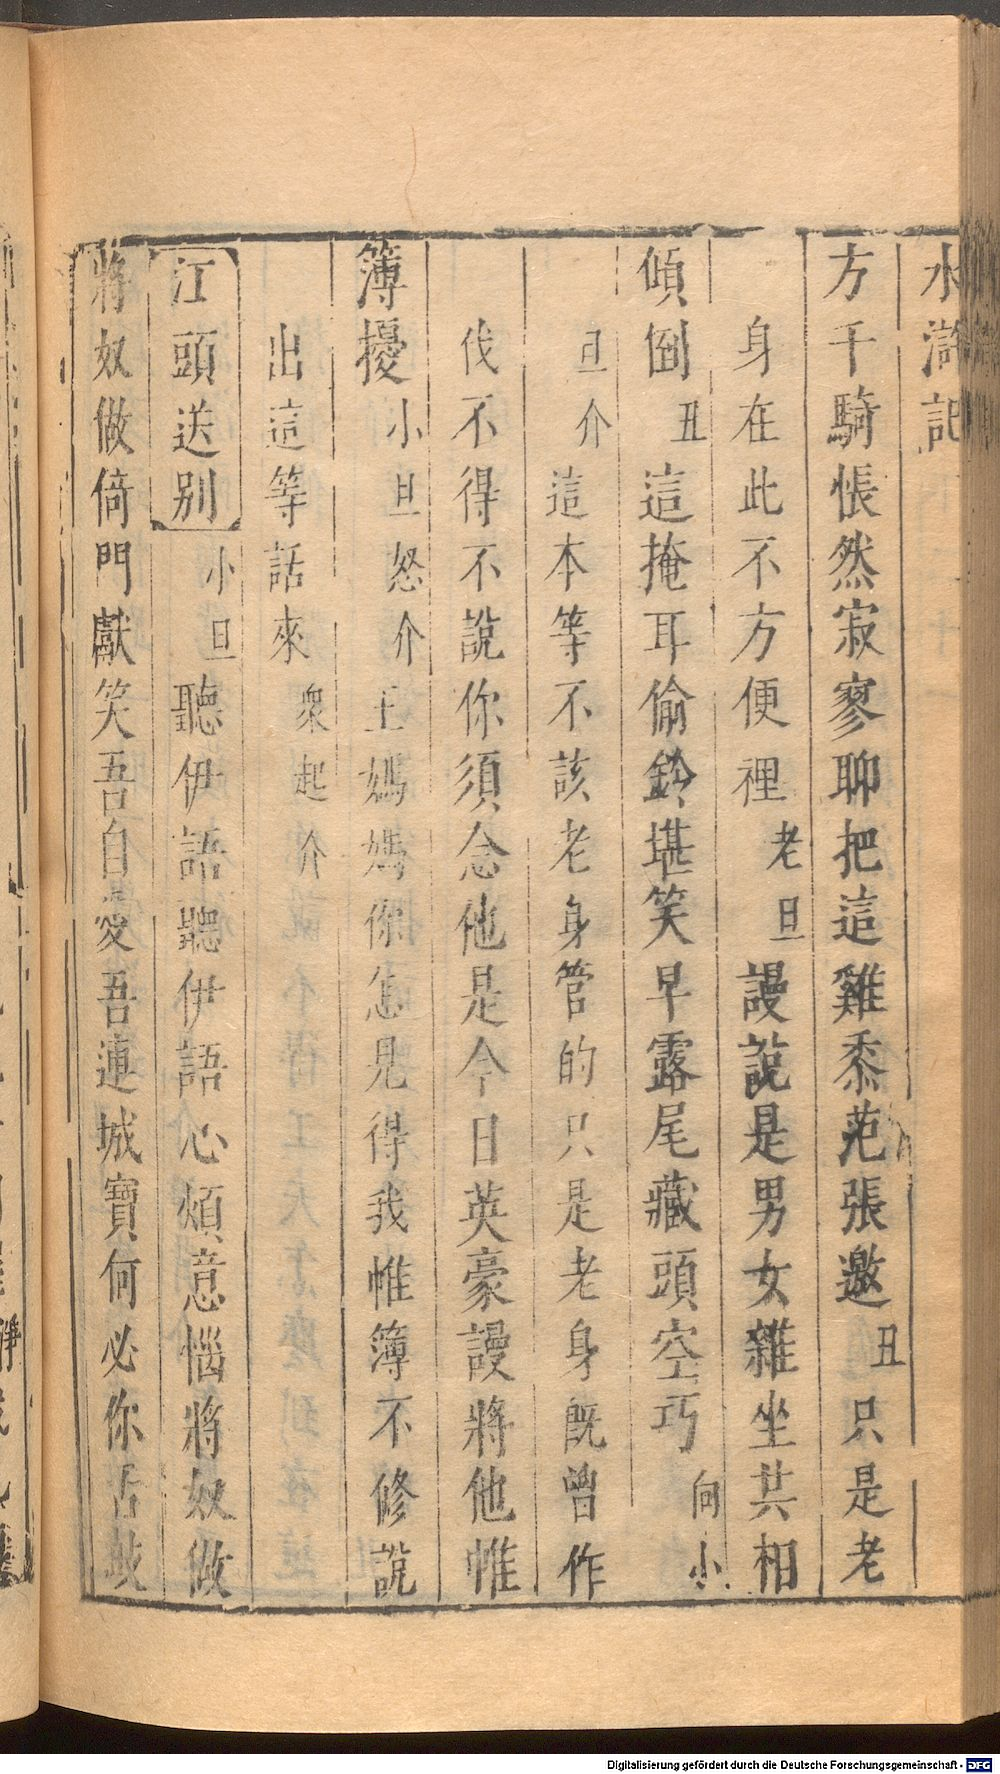 水滸記
方千騎悵然寂寥聊把這雞黍范張邀丑只是老
身在此不方便裡老旦謾說是男女雜坐共相
傾倒丑這掩耳偷鈴堪笑早露尾藏頭空巧向小
旦介這本等不該老身管的只是老身既曾作
伐不得不說你須念他是今日英豪謾將他帷
簿擾小旦怒介王媽媽你怎見得我帷簿不修說
出這等話來衆起介
江頭送别小旦聽伊語聽伊語心煩意惱將奴做
將奴做倚門獻笑吾自愛吾連城寶何必你舌敲
Digitalisierung gefördert durch die Deutsche Forschungsgemeinschaft - DFG